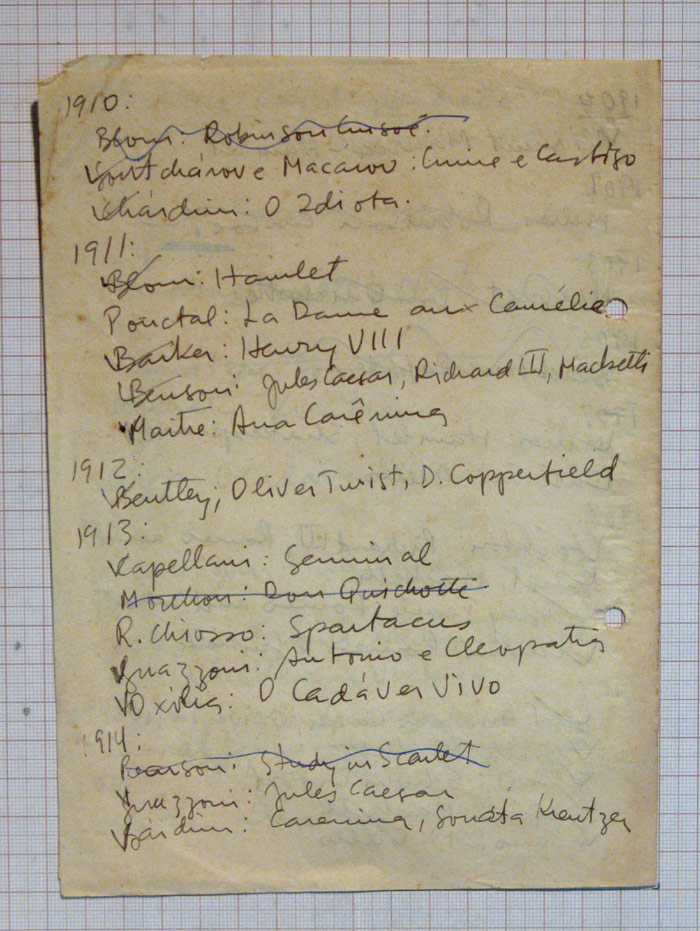 1910:
Blom: Robinson Crusoé.
Gontchárov e Macarov: Crime e Castigo
Chárdini: O Idiota.
1911:
Blom: Hamlet
Pouctal: La Dame aux Camélie
Barker: Henry VIII
Benson: Jules Caesar, Richard III, Macbeth
Maitre: Ana Carênina
1912:
Bentley, Oliver Twist, D. Copperfield
1913:
Capellani: Germinal
Don Quichotte
R. Chiosso: Spartacus
Guazzoni: Antonio e Cleopatra
Oxilia: O Cadáver Vivo
1914:
Pearson: Study in Scarlet
Guazzoni: Jules Caesar
Gárdin: Carenina, Sonáta Kreutzer